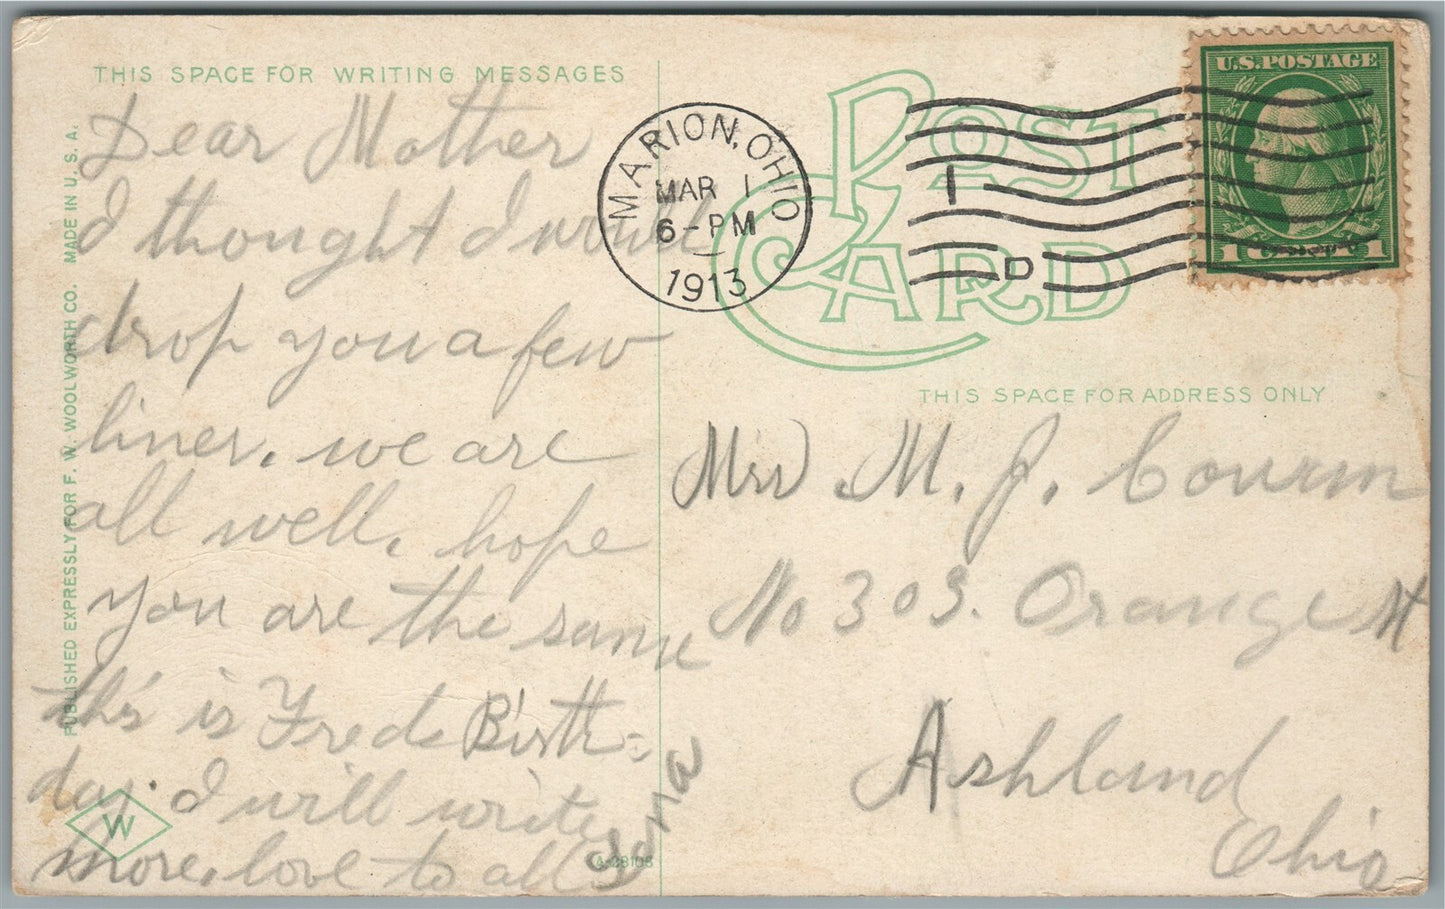 THIS SPACE FOR WRITING MESSAGES
Dear Mother
I thought I would
drop you a few
liner. we are
all well. hope
you are the same
this is Freds Birth-
day. I will write
more. love to all
PUBLISHED EXPRESSLY FOR F. W. WOOLWORTH CO. MADE IN U. S. A.
W
A-28105
MARION, OHIO
MAR 1
6-PM
1913
1
D
POST
CARD
U.S. POSTAGE
1 CENT 1
THIS SPACE FOR ADDRESS ONLY
Mrs. M. J.
No 303. Orange St
Ashland
Ohio